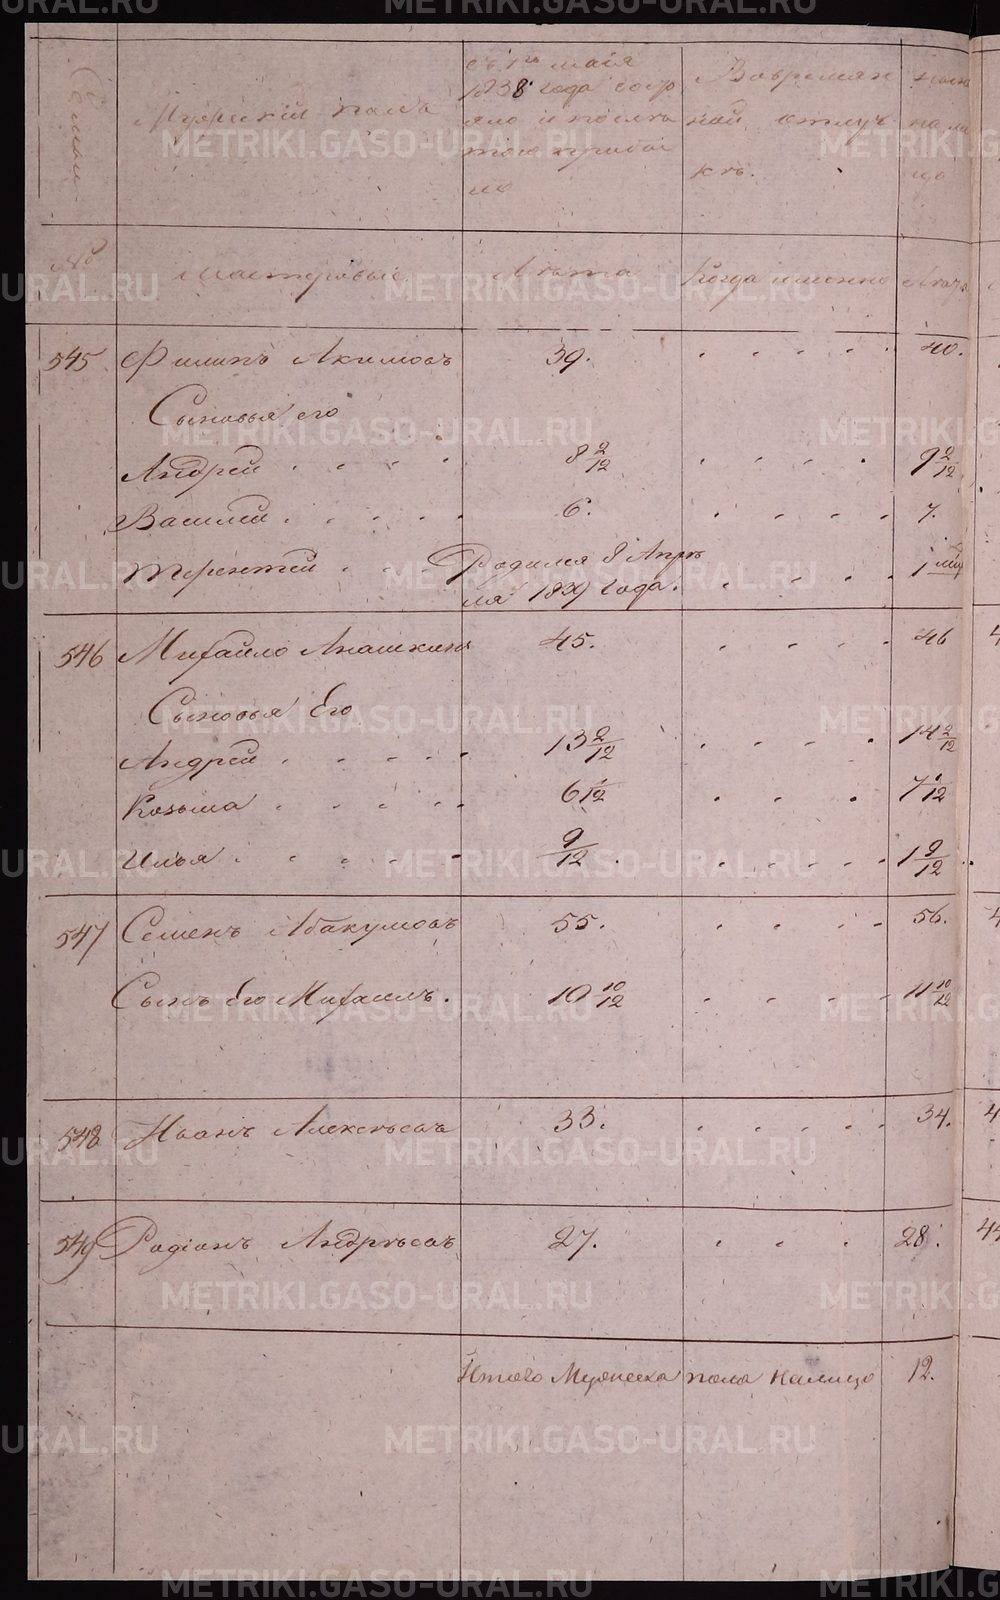 Семьи
Мужескій полъ
съ 1го маія
1838 года состо
яло и послѣ
того прибы
ло
Вовремян
ной отлуч
кѣ.
налицо
№
Мастеровые
Лѣта
Когда именно
Лѣта
545 Филипъ Акимовъ 39. 40.
Сыновья его
Андрей 8 2/12 9 2/12
Василей 6. 7.
Терентей Родился 8 Апрѣ
ля 1839 года. 1 мц
546 Михайло Анашкинъ 45. 46
Сыновья Его
Андрей 13 2/12 14 2/12
Козьма 6 1/12 7 1/12
Илья 9/12. 1 9/12
547 Семенъ Абакумовъ 55. 56.
Сынъ Его Михаилъ. 10 10/12 11 10/12
548 Иванъ Алексѣевъ 33. 34.
549 Радіонъ Андрѣевъ 27. 28.
Итого Мужеска пола налицо 12.
METRIKI.GASO-URAL.RU